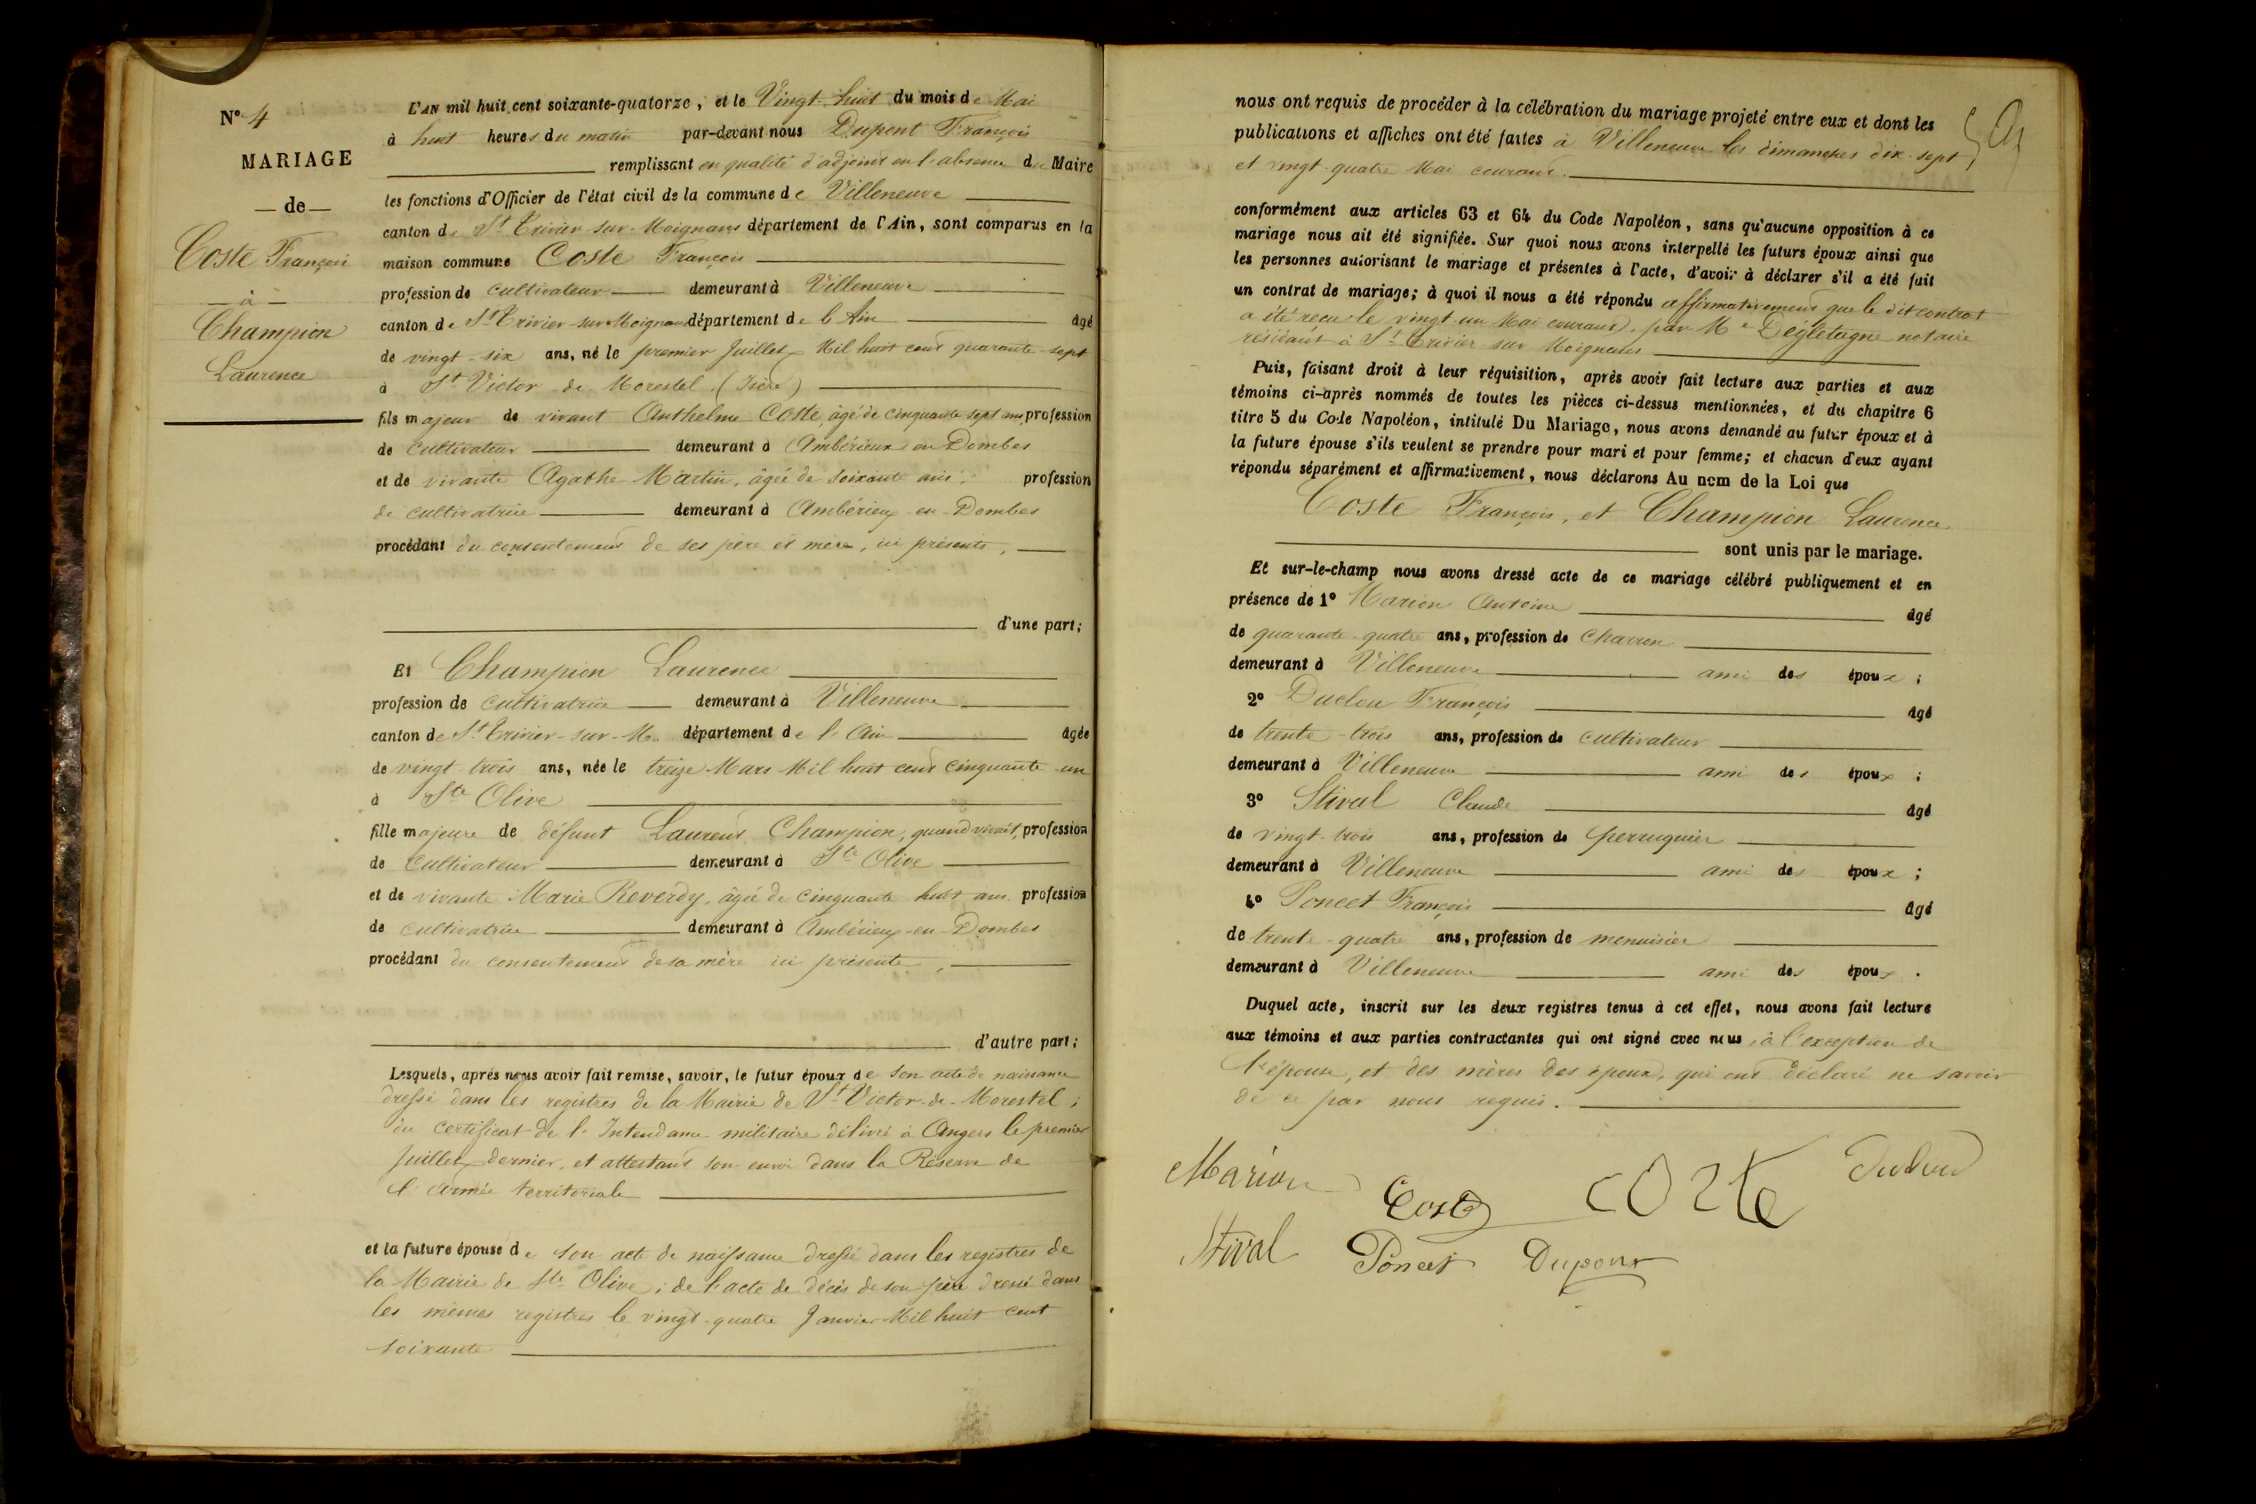 N° 4
MARIAGE
— de —
Coste François
— à —
Champion
Laurence
L'AN mil huit cent soixante-quatorze, et le Vingt-huit du mois de Mai
à huit heures du matin par-devant nous Dupont François
remplissant en qualité d'adjoint en l'absence du Maire
les fonctions d'Officier de l'état civil de la commune de Villeneuve
canton de St Trivier-sur-Moignans département de l'Ain, sont comparus en la
maison commune Coste François
profession de cultivateur demeurant à Villeneuve
canton de St Trivier-sur-Moignans département de l'Ain âgé
de vingt-six ans, né le premier Juillet Mil huit cent quarante-sept
à St Victor-de-Morestel (Isère)
fils majeur de vivant Anthelme Coste, âgé de cinquante sept ans, profession
de cultivateur demeurant à Ambérieux en Dombes
et de vivante Agathe Martin, âgée de soixante ans, profession
de cultivatrice demeurant à Ambérieux-en-Dombes
procédant du consentement de ses père et mère, ici présents,
d'une part;
Et Champion Laurence
profession de cultivatrice demeurant à Villeneuve
canton de St Trivier-sur-M. département de l'Ain âgée
de vingt-trois ans, née le treize Mars Mil huit cent cinquante-un
à Ste Olive
fille majeure de défunt Laurent Champion, quand vivait, profession
de cultivateur demeurant à Ste Olive
et de vivante Marie Reverdy, âgée de cinquante huit ans, profession
de cultivatrice demeurant à Ambérieux-en-Dombes
procédant du consentement de sa mère ici présente,
d'autre part;
Lesquels, après nous avoir fait remise, savoir, le futur époux de son acte de naissance
dressé dans les registres de la Mairie de St Victor-de-Morestel;
du certificat de l'Intendance militaire délivré à Angers le premier
Juillet dernier, et attestant son envoi dans la Réserve de
l'armée territoriale
et la future épouse de son acte de naissance dressé dans les registres de
la Mairie de Ste Olive; de l'acte de décès de son père dressé dans
les mêmes registres le vingt-quatre Janvier Mil huit cent
soixante
nous ont requis de procéder à la célébration du mariage projeté entre eux et dont les
publications et affiches ont été faites à Villeneuve les dimanches dix-sept
et vingt-quatre Mai courant.
conformément aux articles 63 et 64 du Code Napoléon, sans qu'aucune opposition à ce
mariage nous ait été signifiée. Sur quoi nous avons interpellé les futurs époux ainsi que
les personnes autorisant le mariage et présentes à l'acte, d'avoir à déclarer s'il a été fait
un contrat de mariage; à quoi il nous a été répondu affirmativement que le dit contrat
a été reçu le vingt-un Mai courant, par Me Degletagne notaire
résidant à St Trivier sur Moignans
Puis, faisant droit à leur réquisition, après avoir fait lecture aux parties et aux
témoins ci-après nommés de toutes les pièces ci-dessus mentionnées, et du chapitre 6
titre 5 du Code Napoléon, intitulé Du Mariage, nous avons demandé au futur époux et à
la future épouse s'ils veulent se prendre pour mari et pour femme; et chacun d'eux ayant
répondu séparément et affirmativement, nous déclarons Au nom de la Loi que
Coste François, et Champion Laurence
sont unis par le mariage.
Et sur-le-champ nous avons dressé acte de ce mariage célébré publiquement et en
présence de 1° Marion Antoine âgé
de quarante-quatre ans, profession de charron
demeurant à Villeneuve ami des époux;
2° Duclou François âgé
de trente-trois ans, profession de cultivateur
demeurant à Villeneuve ami des époux;
3° Stival Claude âgé
de vingt-trois ans, profession de perruquier
demeurant à Villeneuve ami des époux;
4° Poncet François âgé
de trente-quatre ans, profession de menuisier
demeurant à Villeneuve ami des époux.
Duquel acte, inscrit sur les deux registres tenus à cet effet, nous avons fait lecture
aux témoins et aux parties contractantes qui ont signé avec nous, à l'exception de
l'épouse, et des mères des époux, qui ont déclaré ne savoir
de ce par nous requis.
Marion Coste COSTe Duclou
Stival Poncet Dupont